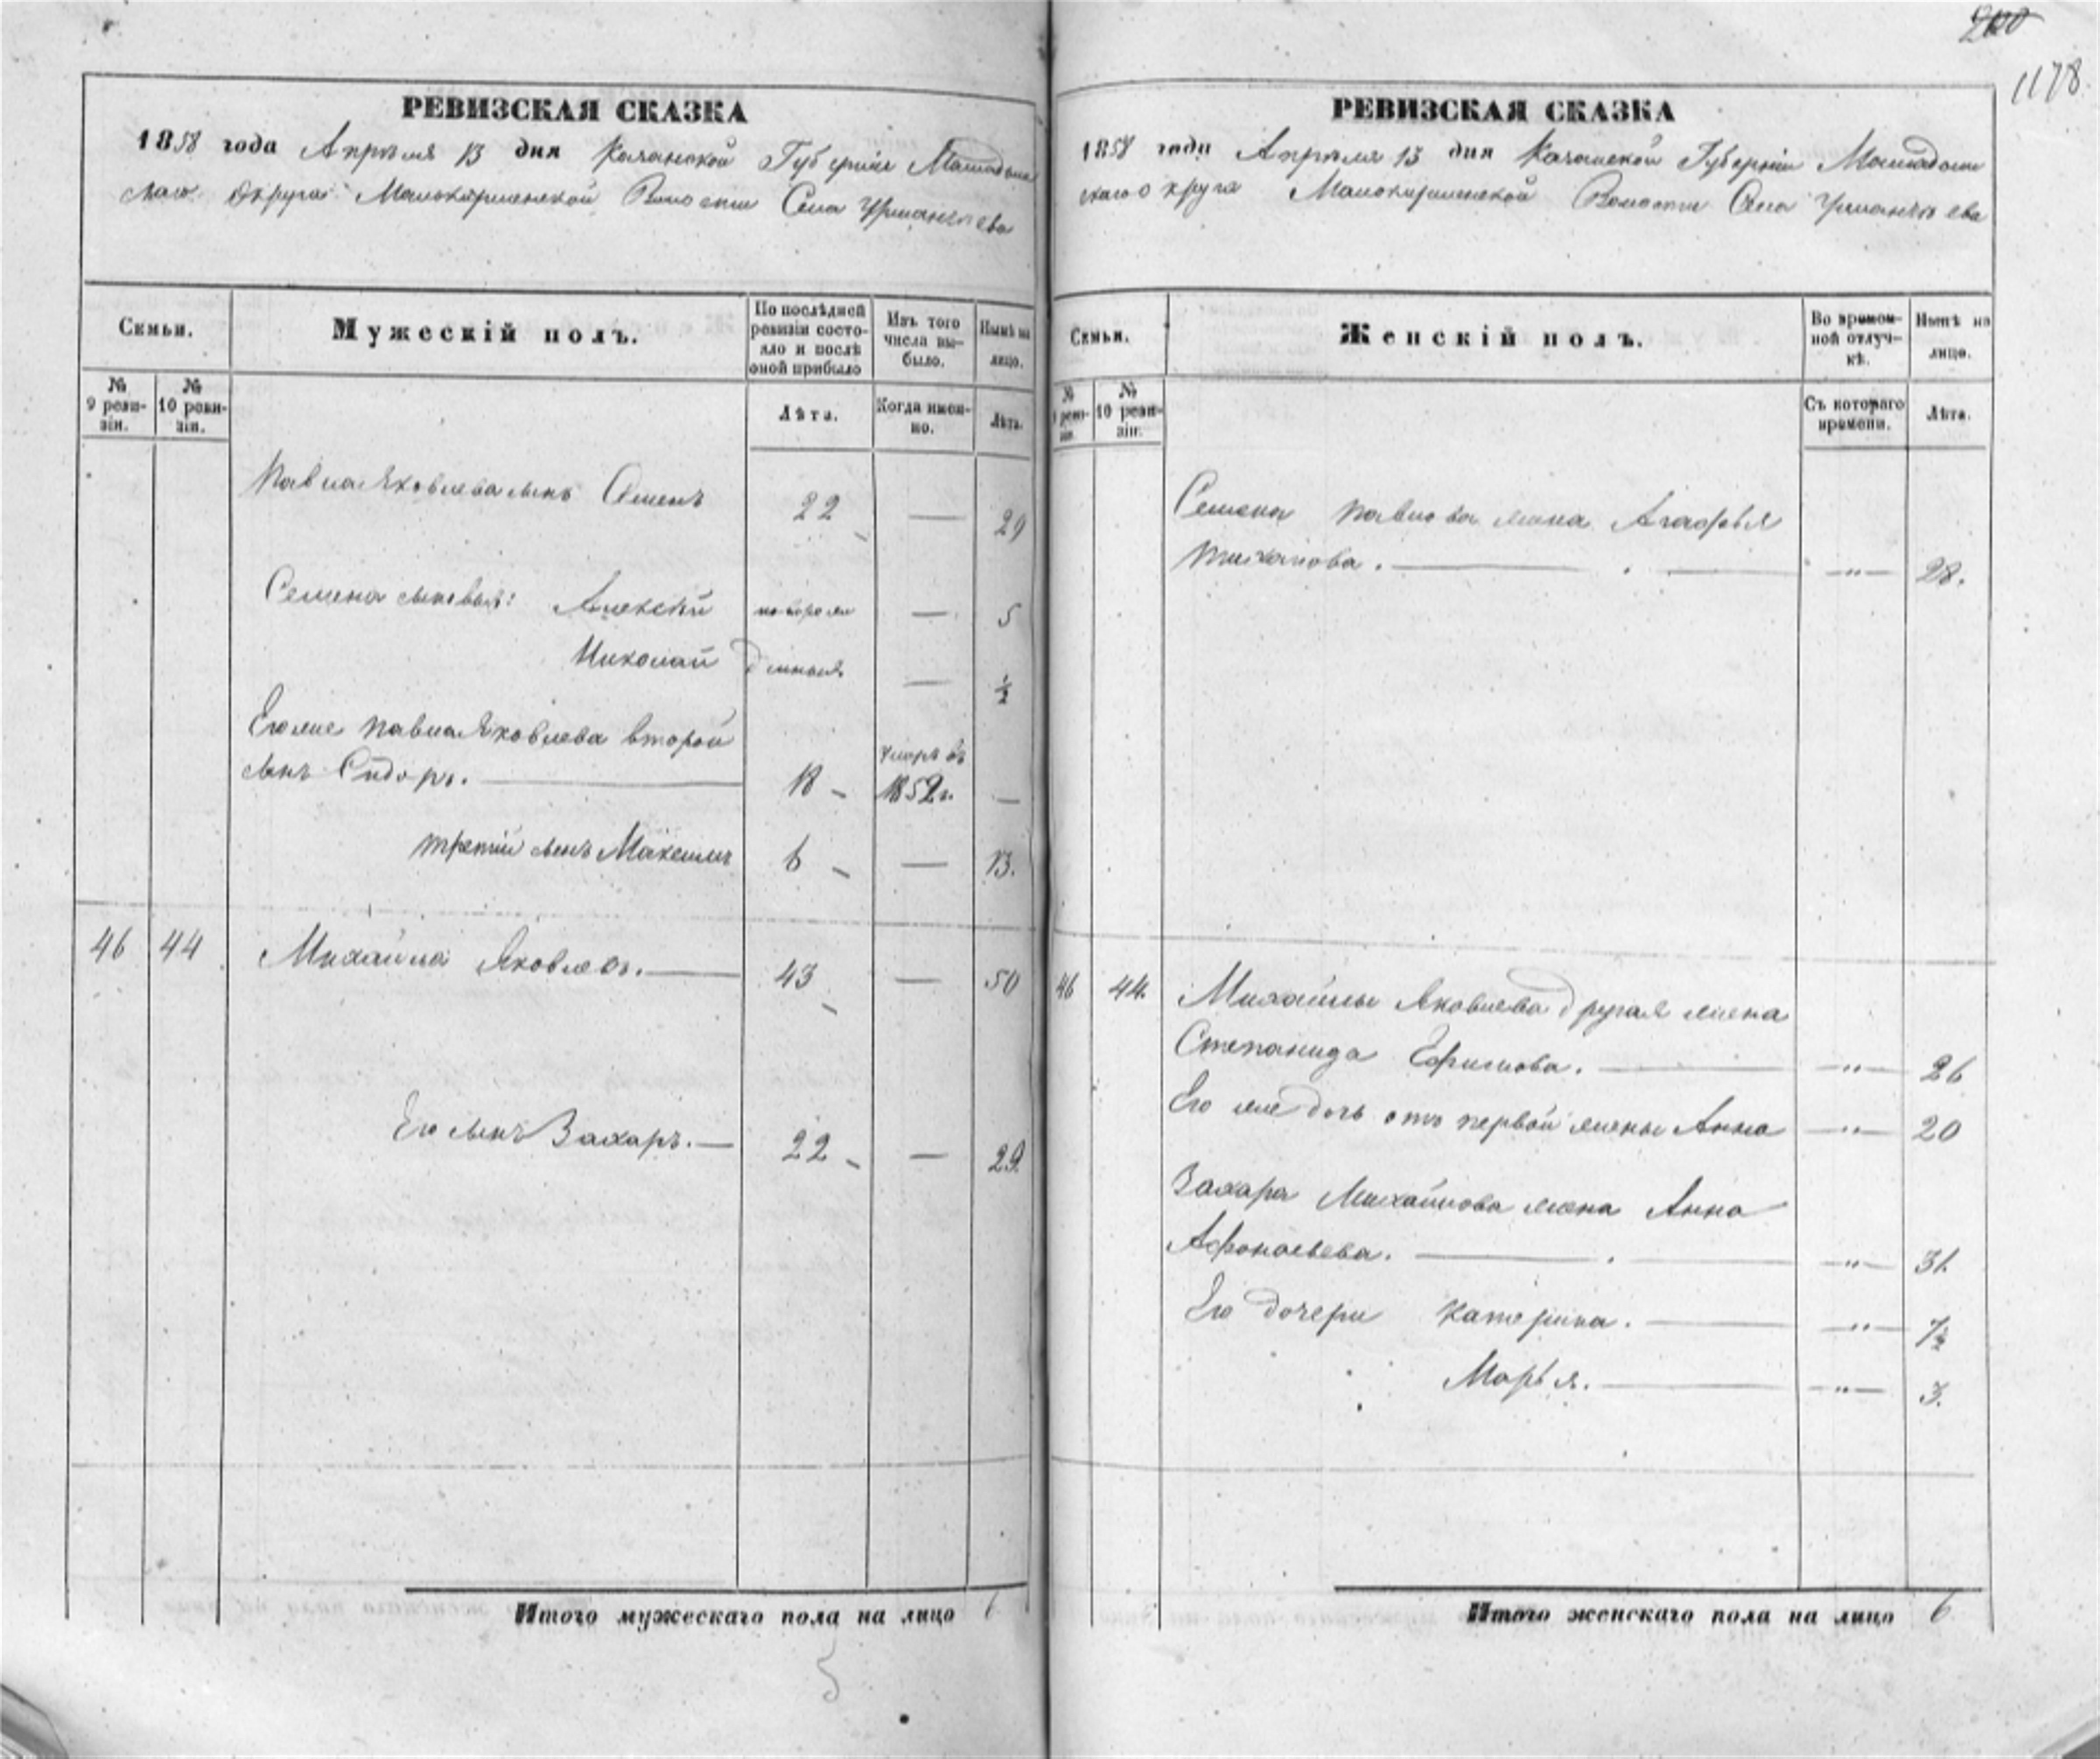 1178
РЕВИЗСКАЯ СКАЗКА
1858 года Апрѣля 13 дня Казанской Губерніи Мамадыш
скаго Округа Малокирменской Волости Села Урманчѣева
Семьи.
Мужескій полъ.
По послѣдней ревизіи состо-
яло и послѣ
оной прибыло
Изъ того
числа вы-
было.
Нынѣ на
лицо.
№
9 реви-
зіи.
№
10 реви-
зіи.
Лѣта.
Когда имен-
но.
Лѣта.
Павла Яковлева сынъ Семенъ 22 — 29
Семена сыновья: Алексѣй новорож — 5
Николай денныя — ½
Его же Павла Яковлева второй
сынъ Сидоръ. 18 умеръ въ 1852 г. —
третій сынъ Максимъ 6 — 13.
46 44 Михайла Яковлевъ. 43 — 50
Его сынъ Захаръ. 22 — 29.
Итого мужескаго пола на лицо
5
РЕВИЗСКАЯ СКАЗКА
1858 года Апрѣля 13 дня Казанской Губерніи Мамадыш
скаго Округа Малокирменской Волости Села Урманчѣева
Семьи.
Женскій полъ.
Во времен-
ной отлуч-
кѣ.
Нынѣ на
лицо.
№
9 реви-
зіи.
№
10 реви-
зіи.
Съ котораго
времени.
Лѣта.
Семена Павлова жена Агафья
Тиханова. — " — 28.
46 44. Михайлы Яковлева другая жена
Степанида Ефимова. — " — 26
Его же дочь отъ первой жены Анна — " — 20
Захара Михайлова жена Анна
Афонасьева. — " — 31.
Его дочери Катерина. — " — 7½
Марья. — " — 3.
Итого женскаго пола на лицо 6